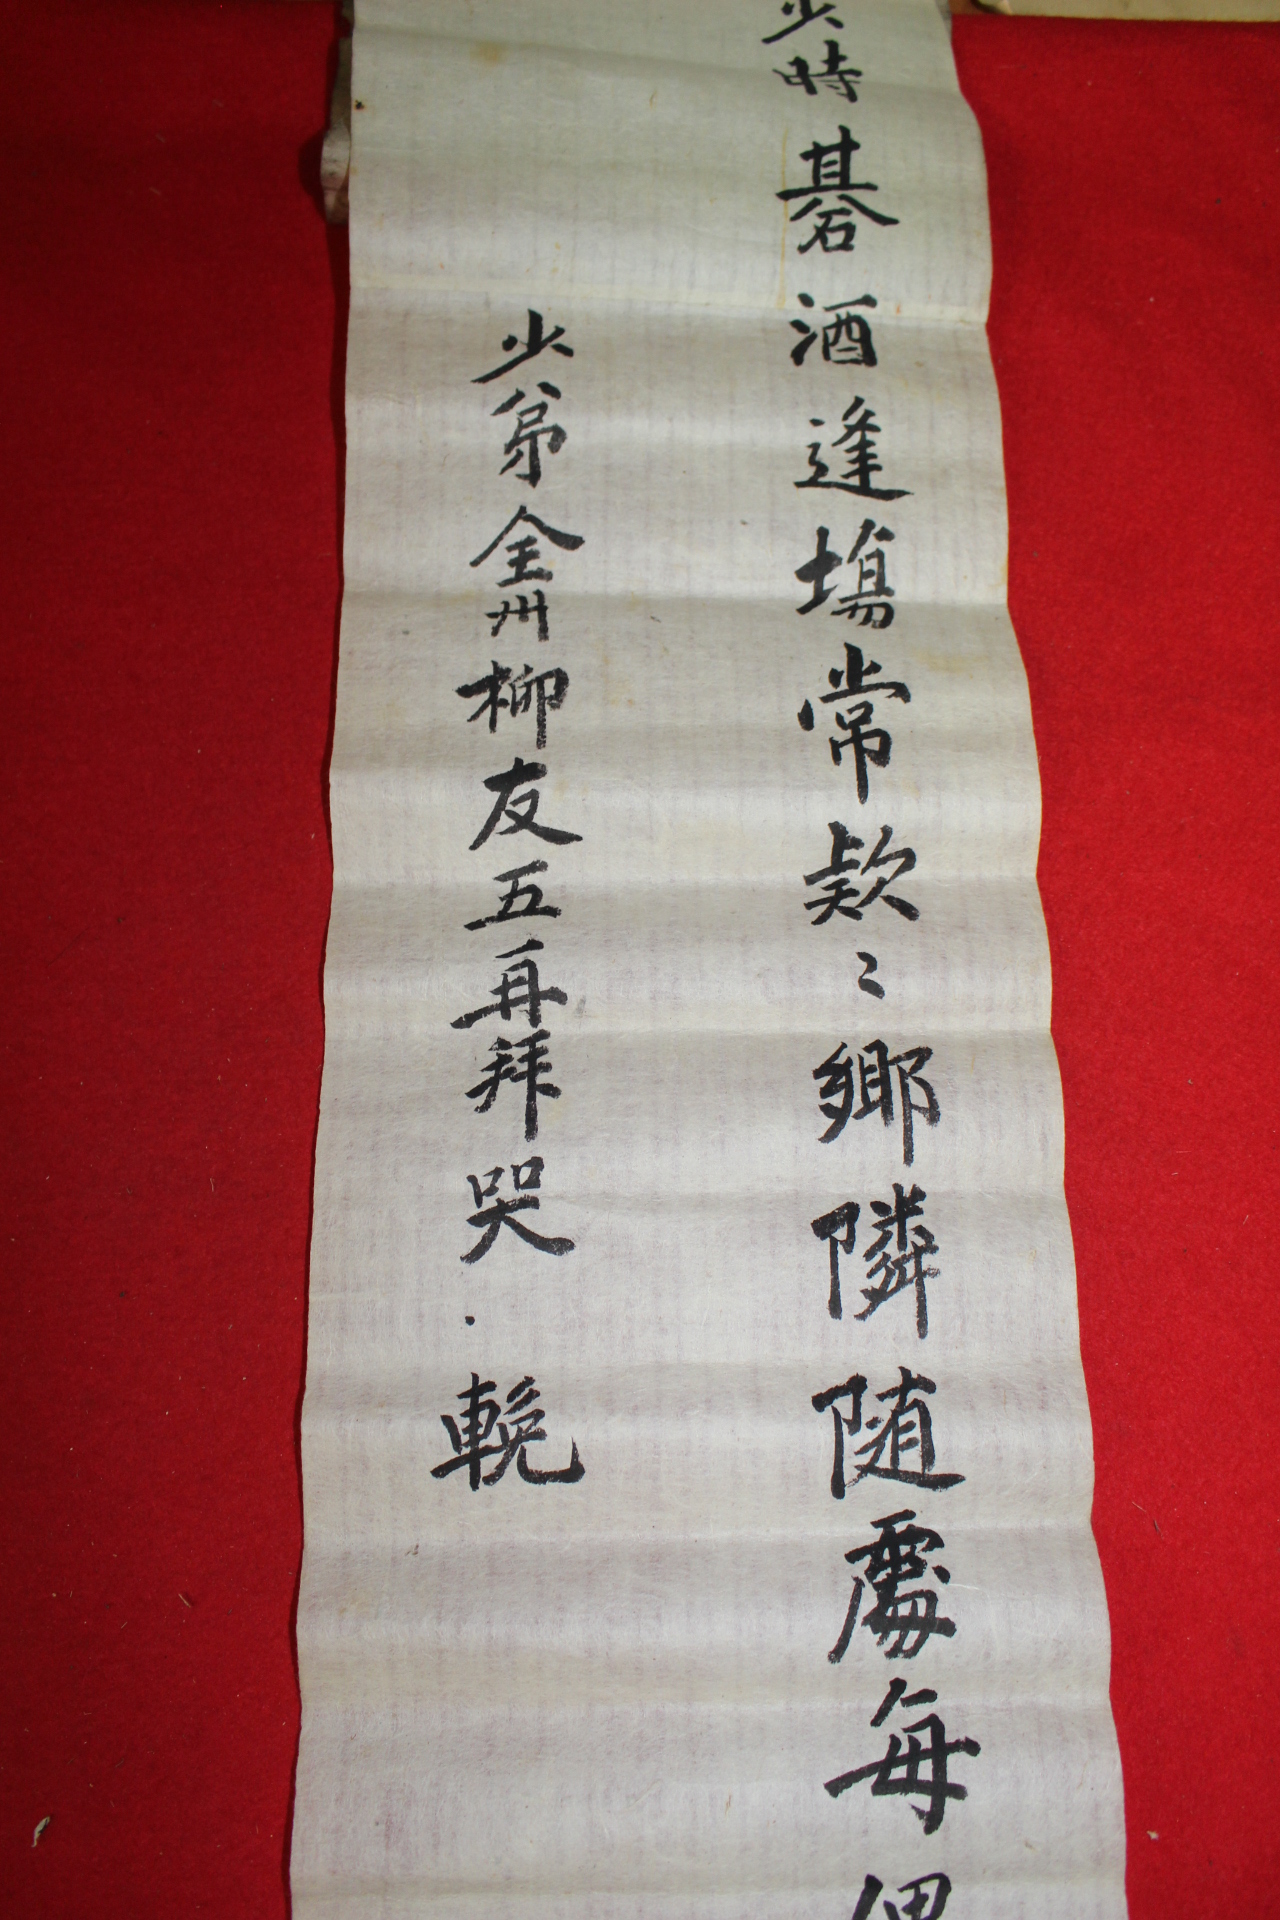 少時碁酒逢塲常欵〻鄉隣随處每偲
少弟全州柳友五再拜哭輓